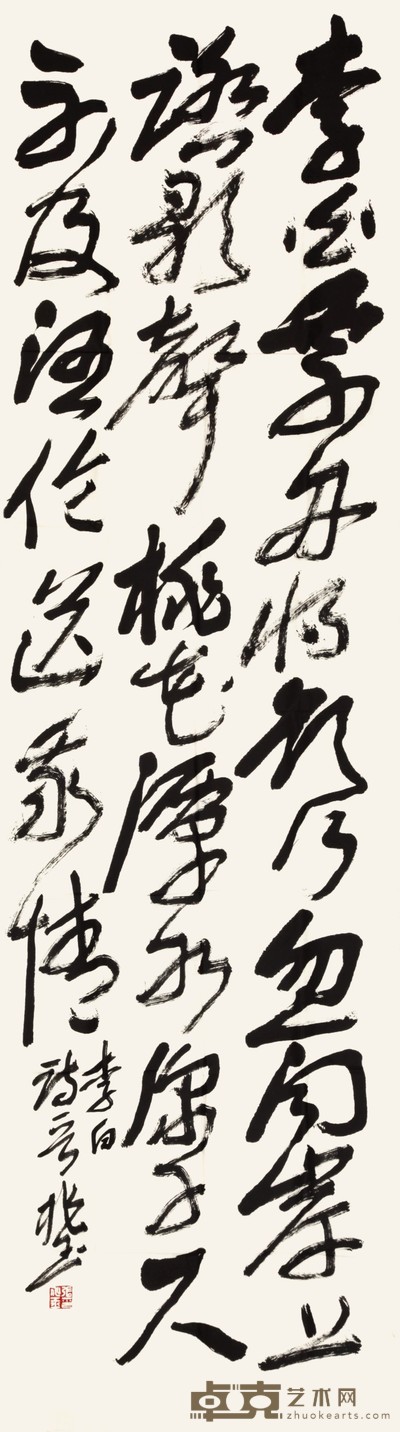 李白乘舟将欲行忽闻岸上
踏歌聲桃花潭水深千尺
不及汪伦送我情
李白
诗
卓克艺术网
zhuokearts.com